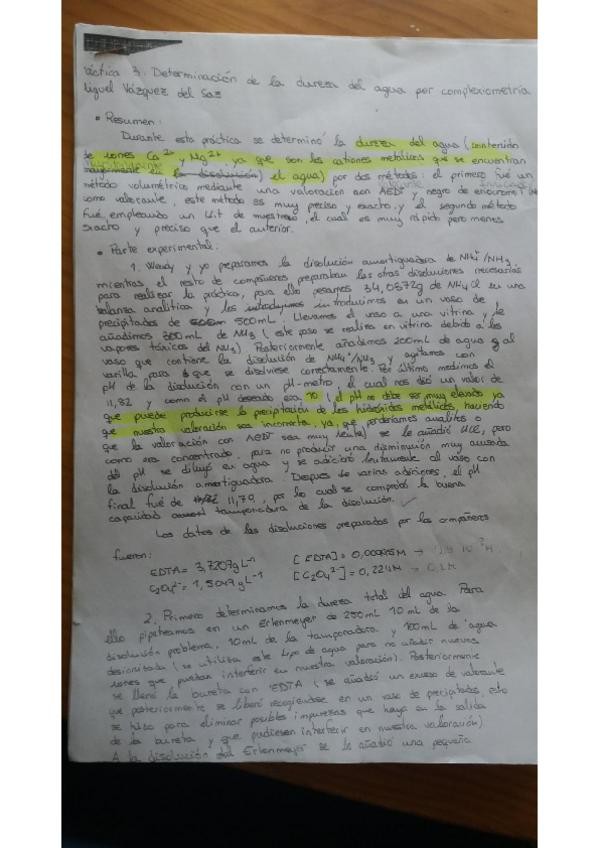 áctica 3: Determinación de la dureza del agua por complexiometría
Miguel Vázquez del Saz
• Resumen:
Durante esta práctica se determinó la dureza del agua (contenido
de iones Ca²⁺ y Mg²⁺, ya que son los cationes metálicos que se encuentran
mayormente en la disolución) el agua) por dos métodos: el primero fué un
método volumétrico mediante una valoración con AEDT y negro de eriocromo T
como valorante, este método es muy preciso y exacto, y el segundo método
fué empleando un kit de muestreo, el cual es muy rápido pero menos
exacto y preciso que el anterior.
• Parte experimental:
1. Wendy y yo preparamos la disolución amortiguadora de NH₄⁺/NH₃,
mientras el resto de compañeros preparaban las otras disoluciones necesarias
para realizar la práctica, para ello pesamos 34,0572g de NH₄Cl en una
balanza analítica y los introdujimos en un vaso de
precipitados de 500mL. Llevamos el vaso a una vitrina y le
añadimos 300mL de NH₃ (este paso se realiza en vitrina debido a los
vapores tóxicos del NH₃). Posteriormente añadimos 200mL de agua al
vaso que contiene la disolución de NH₄⁺/NH₃ y agitamos con
varilla para que se disolviese correctamente. Por último medimos el
pH de la disolución con un pH-metro, el cual nos dió un valor de
11,82 y como el pH deseado era 10 (el pH no debe ser muy elevado ya
que puede producirse la precipitación de los hidróxidos metálicos, haciendo
que nuestra valoración sea incorrecta, ya que perderíamos analitos o
que la valoración con AEDT sea muy lenta) se le añadió HCl, pero
como era concentrado, para no producir una disminución muy acusada
del pH se diluyó en agua y se adicionó lentamente al vaso con
la disolución amortiguadora. Despues de varias adiciones, el pH
final fué de 11,79, por lo cual se comprobó la buena
capacidad tamponadora de la disolución.
Los datos de las disoluciones preparadas por los compañeros
fueron:
EDTA = 3,7207gL⁻¹ [EDTA] = 0,00995M →
C₂O₄²⁻ = 1,5049gL⁻¹ [C₂O₄²⁻] = 0,224M → 0,1M
2. Primero determinamos la dureza total del agua. Para
ello pipeteamos en un Erlenmeyer de 250mL 10mL de la
disolución problema, 10mL de la tamponadora y 100mL de agua
desionizada (se utiliza este tipo de agua para no añadir nuevos
iones que puedan interferir en nuestra valoración). Posteriormente
se llenó la bureta con EDTA (se añadió un exceso de valorante
que posteriormente se liberó recogiendose en un vaso de precipitados, esto
se hizo para eliminar posibles impurezas que haya en la salida
de la bureta y que pudiesen interferir en nuestra valoración).
A la disolución del Erlenmeyer se le añadió una pequeña